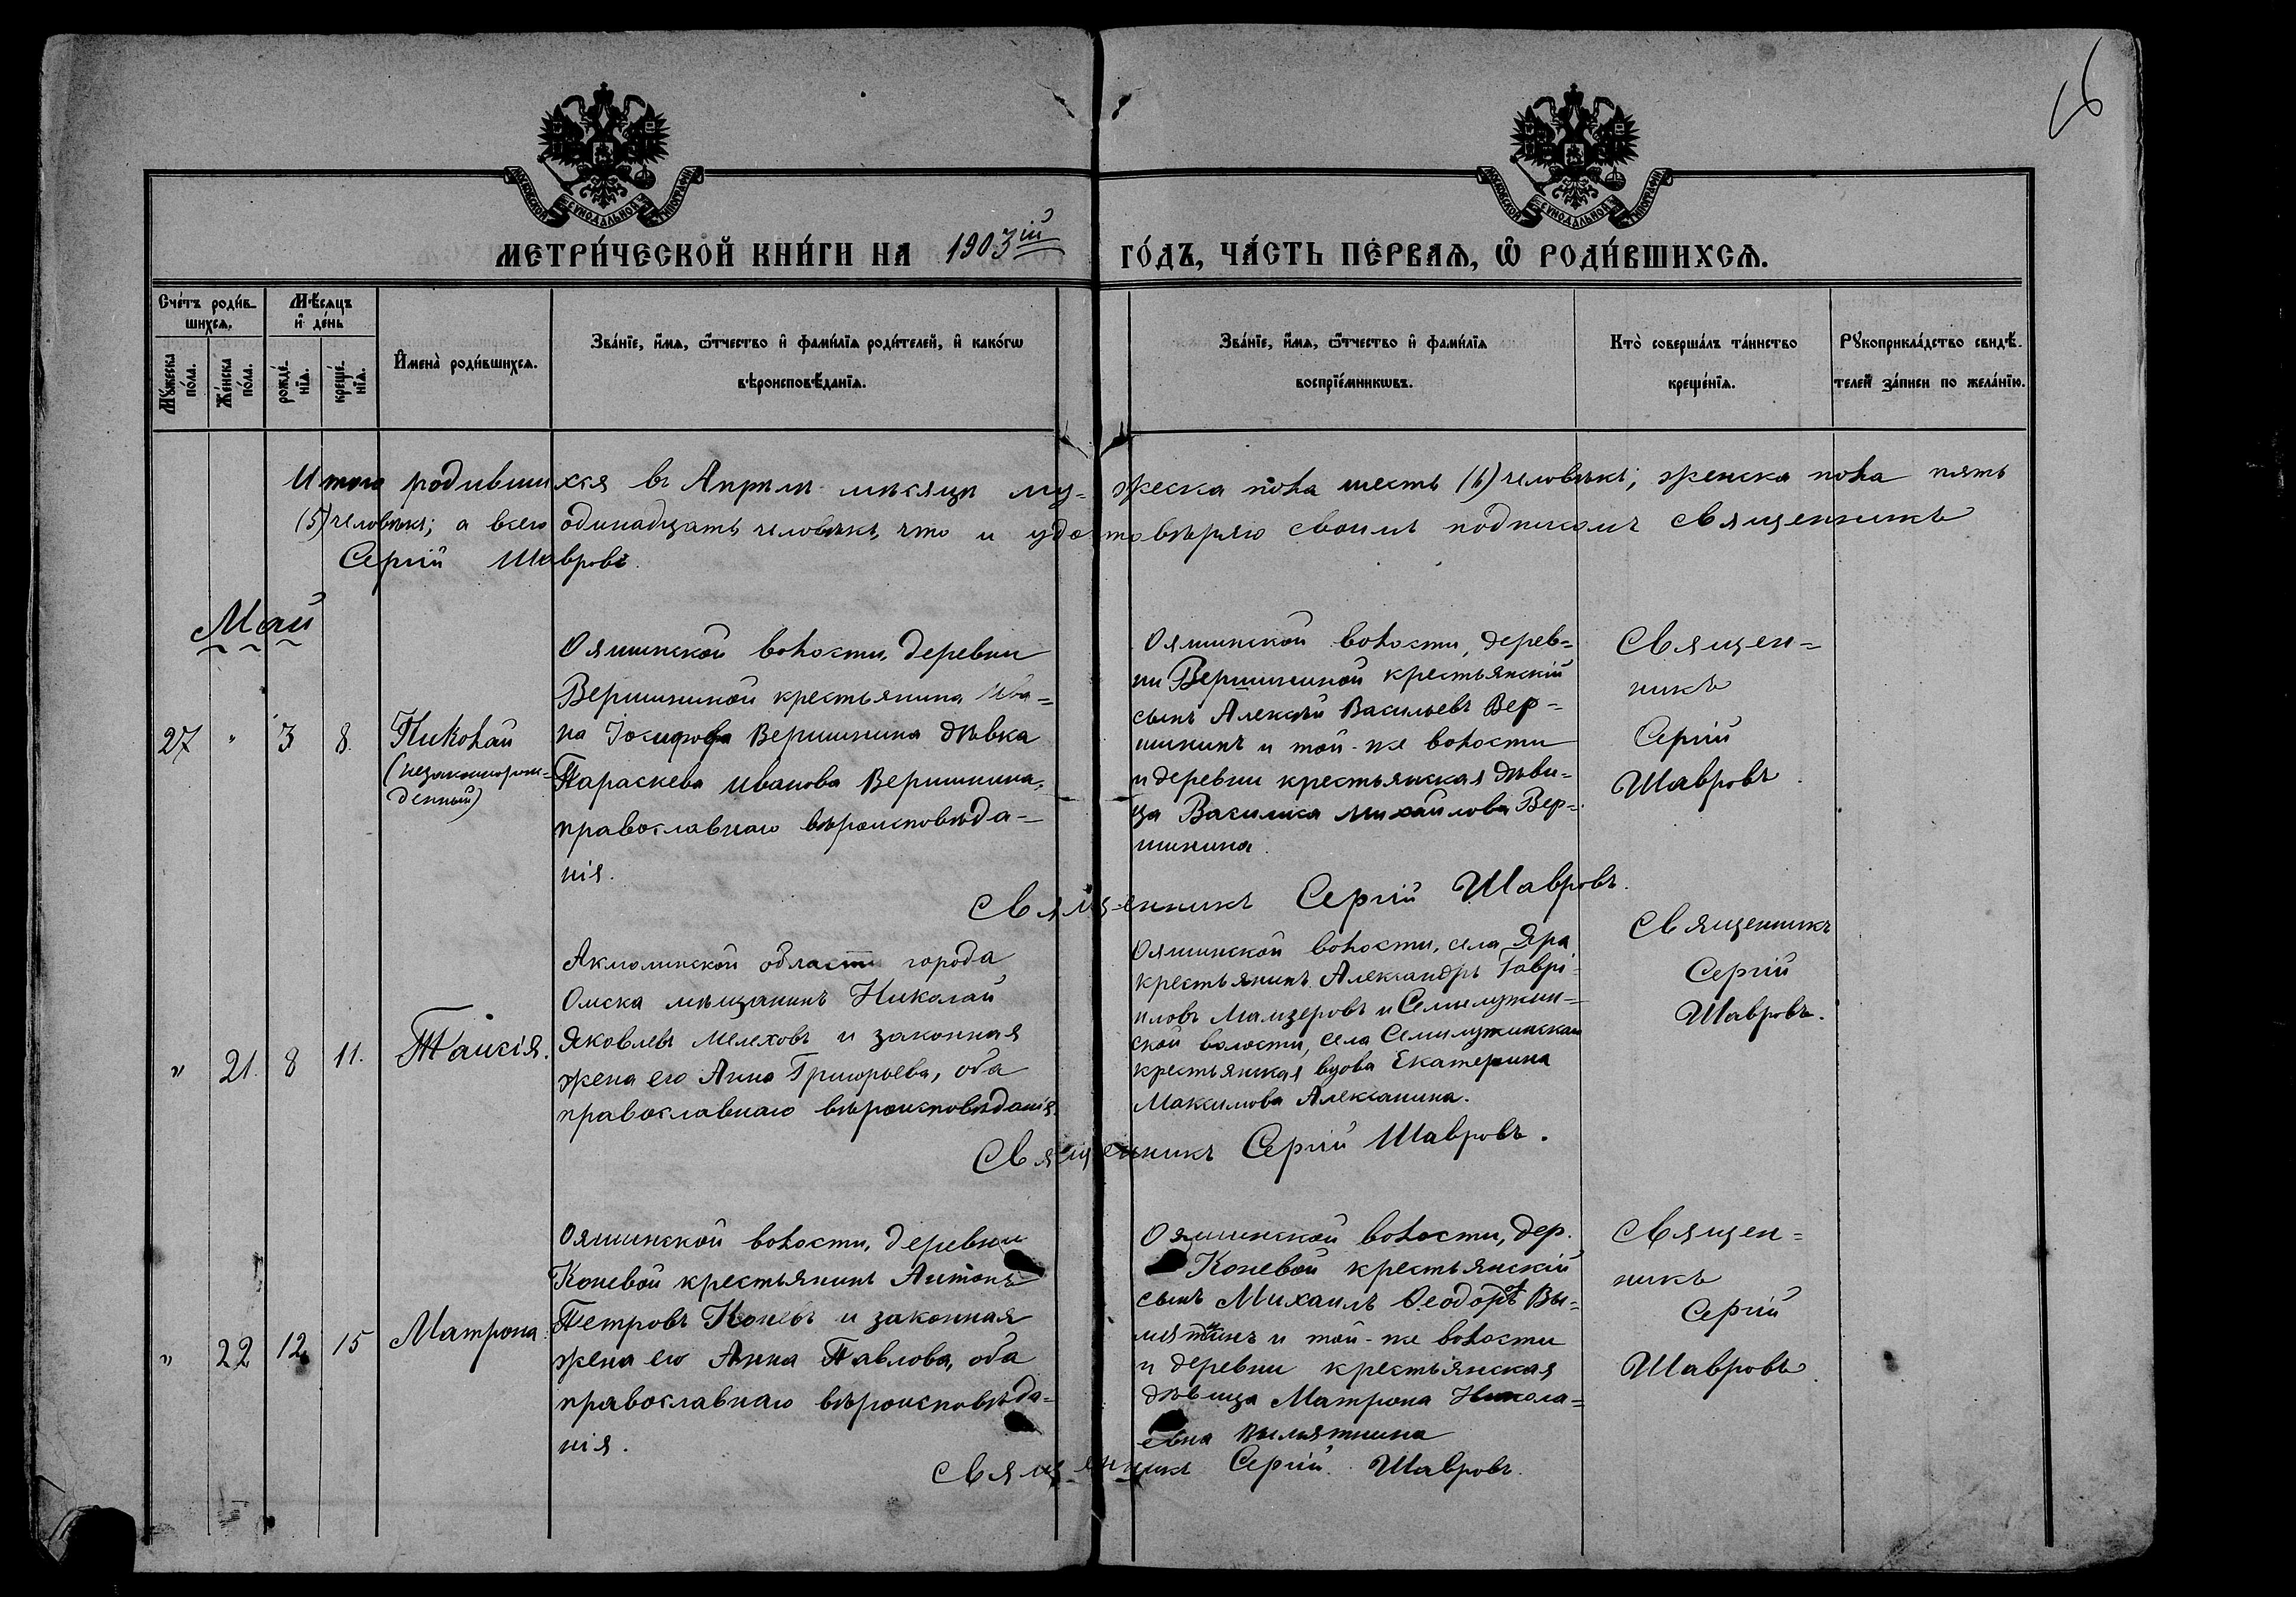 26
МОСКОВСКОЙ СУНОДАЛЬНОЙ ТИПОГРАФІИ
МОСКОВСКОЙ СУНОДАЛЬНОЙ ТИПОГРАФІИ
МЕТРИ́ЧЕСКОЙ КНИ́ГИ НА 1903ій ГО́ДЪ, ЧА́СТЬ ПЕ́РВАѦ, Ѡ РОДИ́ВШИХСѦ.
Сче́тъ роди́в-
шихсѧ.
Мѣ́сѧцъ
и де́нь
Мꙋ́жеска
по́ла.
Же́нска
по́ла.
рожде́-
нїѧ.
креще́-
нїѧ.
Имена̀ роди́вшихсѧ.
Зва́нїе, и́мѧ, ѻ́тчество и фами́лїѧ роди́телей, и како́гѡ
вѣроисповѣ́данїѧ.
Зва́нїе, и́мѧ, ѻ́тчество и фами́лїѧ
воспрїе́мникѡвъ.
Кто̀ соверша́лъ та́инство
креще́нїѧ.
Рꙋкоприкла́дство свидѣ́-
телей за́писи по жела́нїю.
Итого родившихся въ Апрѣлѣ мѣсяцѣ му-жеска пола шесть (6) человѣкъ; женска пола пять
(5) человѣкъ; а всего одинадцать человѣкъ, что и удостовѣряю своимъ подписомъ Священникъ
Сергій Шавровъ.
Май
27 " 3 8.
Николай
(незаконнорож-
денный)
Ояшинской волости, деревни
Вершининой крестьянина Ива-
на Іосифова Вершинина дѣвка
Параскева Иванова Вершинина,
православнаго вѣроисповѣда-
нія.
Ояшинской волости, дерев-
ни Вершининой крестьянскій
сынъ Алексѣй Васильевъ Вер-
шининъ и той-же волости
и деревни крестьянская дѣви-
ца Василиса Михайлова Вер-
шинина.
Священ-
никъ
Сергій
Шавровъ.
Священникъ Сергій Шавровъ.
" 21. 8 11.
Таисія.
Акмолинской области города
Омска мѣщанинъ Николай
Яковлевъ Мелеховъ и законная
жена его Анна Григорьева, оба
православнаго вѣроисповѣданія.
Ояшинской волости, села Яра
крестьянинъ Александръ Гаврі-
иловъ Мамзеровъ и Семилужин-
ской волости, села Семилужинскаго
крестьянская вдова Екатерина
Максимова Алексанина.
Священникъ
Сергій
Шавровъ.
Священникъ Сергій Шавровъ.
" 22 12 15
Матрона.
Ояшинской волости, деревни
Коневой крестьянинъ Антонъ
Петровъ Коневъ и законная
жена его Анна Павлова, оба
православнаго вѣроисповѣда-
нія.
Ояшинской волости, дер.
Коневой крестьянскій
сынъ Михаилъ Ѳеодоровъ Вы-
мятнинъ и той-же волости
и деревни крестьянская
дѣвица Матрона Никола-
евна Вымятнина
Священ-
никъ
Сергій
Шавровъ.
Священникъ Сергій Шавровъ.